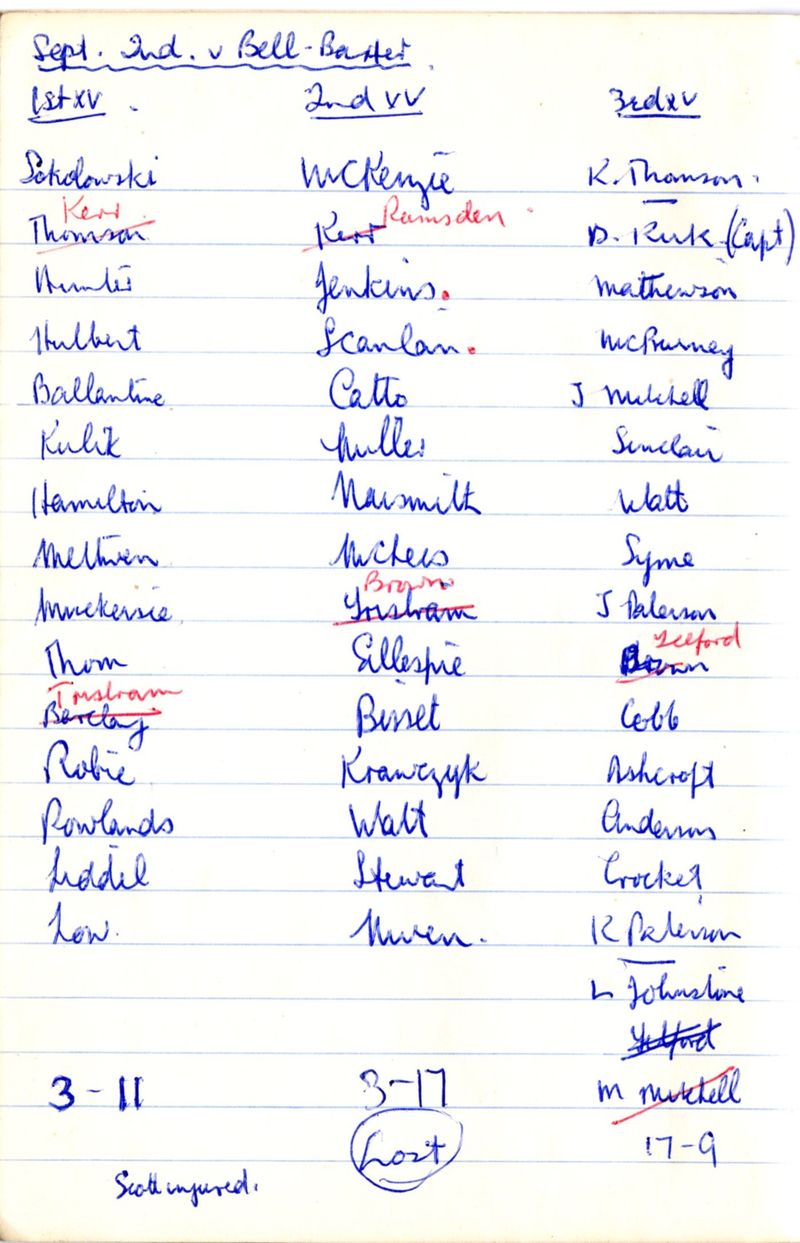 Sept. 2nd. v Bell-Baxter
1st XV . 2nd XV 3rd XV
Sokolowski McKenzie K. Thomson.
Kerr Ramsden
Thomson Kerr D. Kirk (Capt)
Hunter Jenkins. Mathewson
Hulbert Scanlan. McBurney
Ballantine Catto J Mitchell
Kulik Miller Sinclair
Hamilton Naismith Watt
Methven McLees Syme
Brown
Muckersie Tristram J Paterson
Telford
Thom Gillespie Brown
Tristram
Barclay Bisset Cobb
Robie Krawczyk Ashcroft
Rowlands Watt Anderson
Liddel Stewart Crocket
Low. Niven. K Paterson
L Johnstone
Telford
3-11 3-17 M Mitchell
Lost 17-9
Scott injured.